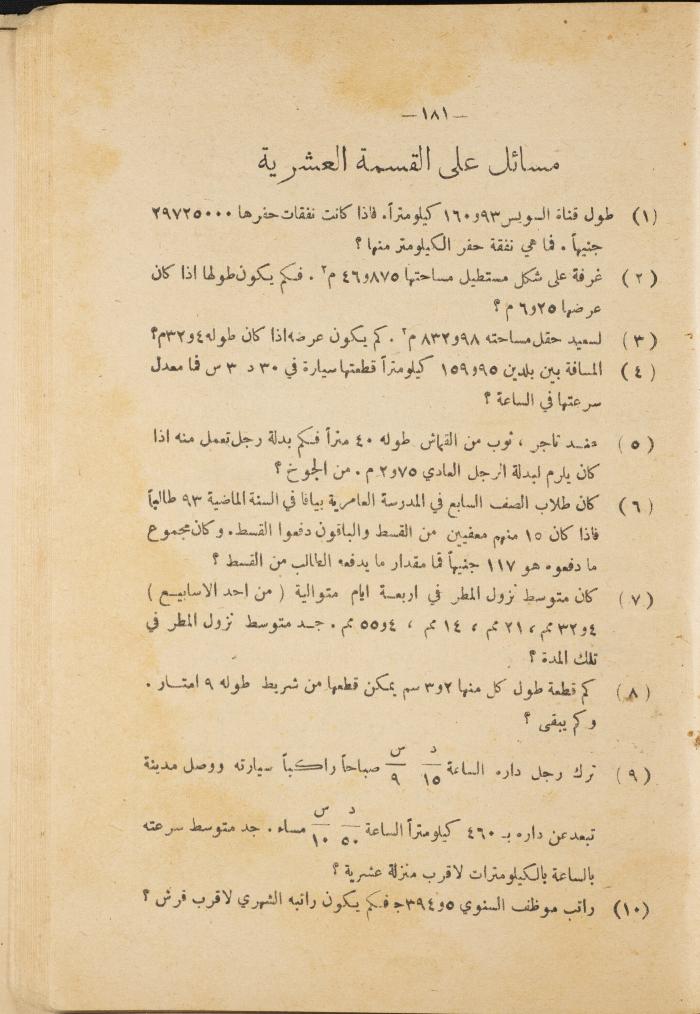 —١٨١—
مسائل على القسمة العشرية
(١) طول قناة السويس ٩٣و١٦٠ كيلومتراً. فاذا كانت نفقات حفرها ٢٩٧٢٥٠٠٠
جنيهاً. فما هي نفقة حفر الكيلومتر منها؟
(٢) غرفة على شكل مستطيل مساحتها ٨٧٥و٤٦ م٢. فكم يكون طولها اذا كان
عرضها ٢٥و٦ م؟
(٣) لسعيد حقل مساحته ٩٨و٨٣٢ م٢. كم يكون عرضه اذا كان طوله ٤و٣٢م؟
(٤) المسافة بين بلدين ٩٥و١٥٩ كيلومتراً قطعتها سيارة في ٣٠ د ٣ س فما معدل
سرعتها في الساعة؟
(٥) عند تاجر، ثوب من القماش طوله ٤٠ متراً فكم بدلة رجل تعمل منه اذا
كان يلزم لبدلة الرجل العادي ٧٥و٢ م. من الجوخ؟
(٦) كان طلاب الصف السابع في المدرسة العامرية بيافا في السنة الماضية ٩٣ طالباً
فاذا كان ١٥ منهم معفيين من القسط والباقون دفعوا القسط. وكان مجموع
ما دفعوه هو ١١٧ جنيهاً فما مقدار ما يدفعه الطالب من القسط؟
(٧) كان متوسط نزول المطر في اربعة ايام متوالية (من احد الاسابيع)
٤و٣٢ مم، ٢١ مم، ١٤ مم، ٤و٥٥ مم. جد متوسط نزول المطر في
تلك المدة؟
(٨) كم قطعة طول كل منها ٢و٣ سم يمكن قطعها من شريط طوله ٩ امتار.
وكم يبقى؟
(٩) ترك رجل داره الساعة د ١٥ س ٩ صباحاً راكباً سيارته ووصل مدينة
تبعد عن داره بـ ٤٦٠ كيلومتراً الساعة د ٥٠ س ١٠ مساء. جد متوسط سرعته
بالساعة بالكيلومترات لاقرب منزلة عشرية؟
(١٠) راتب موظف السنوي ٥و٣٩٤ج فكم يكون راتبه الشهري لاقرب قرش؟